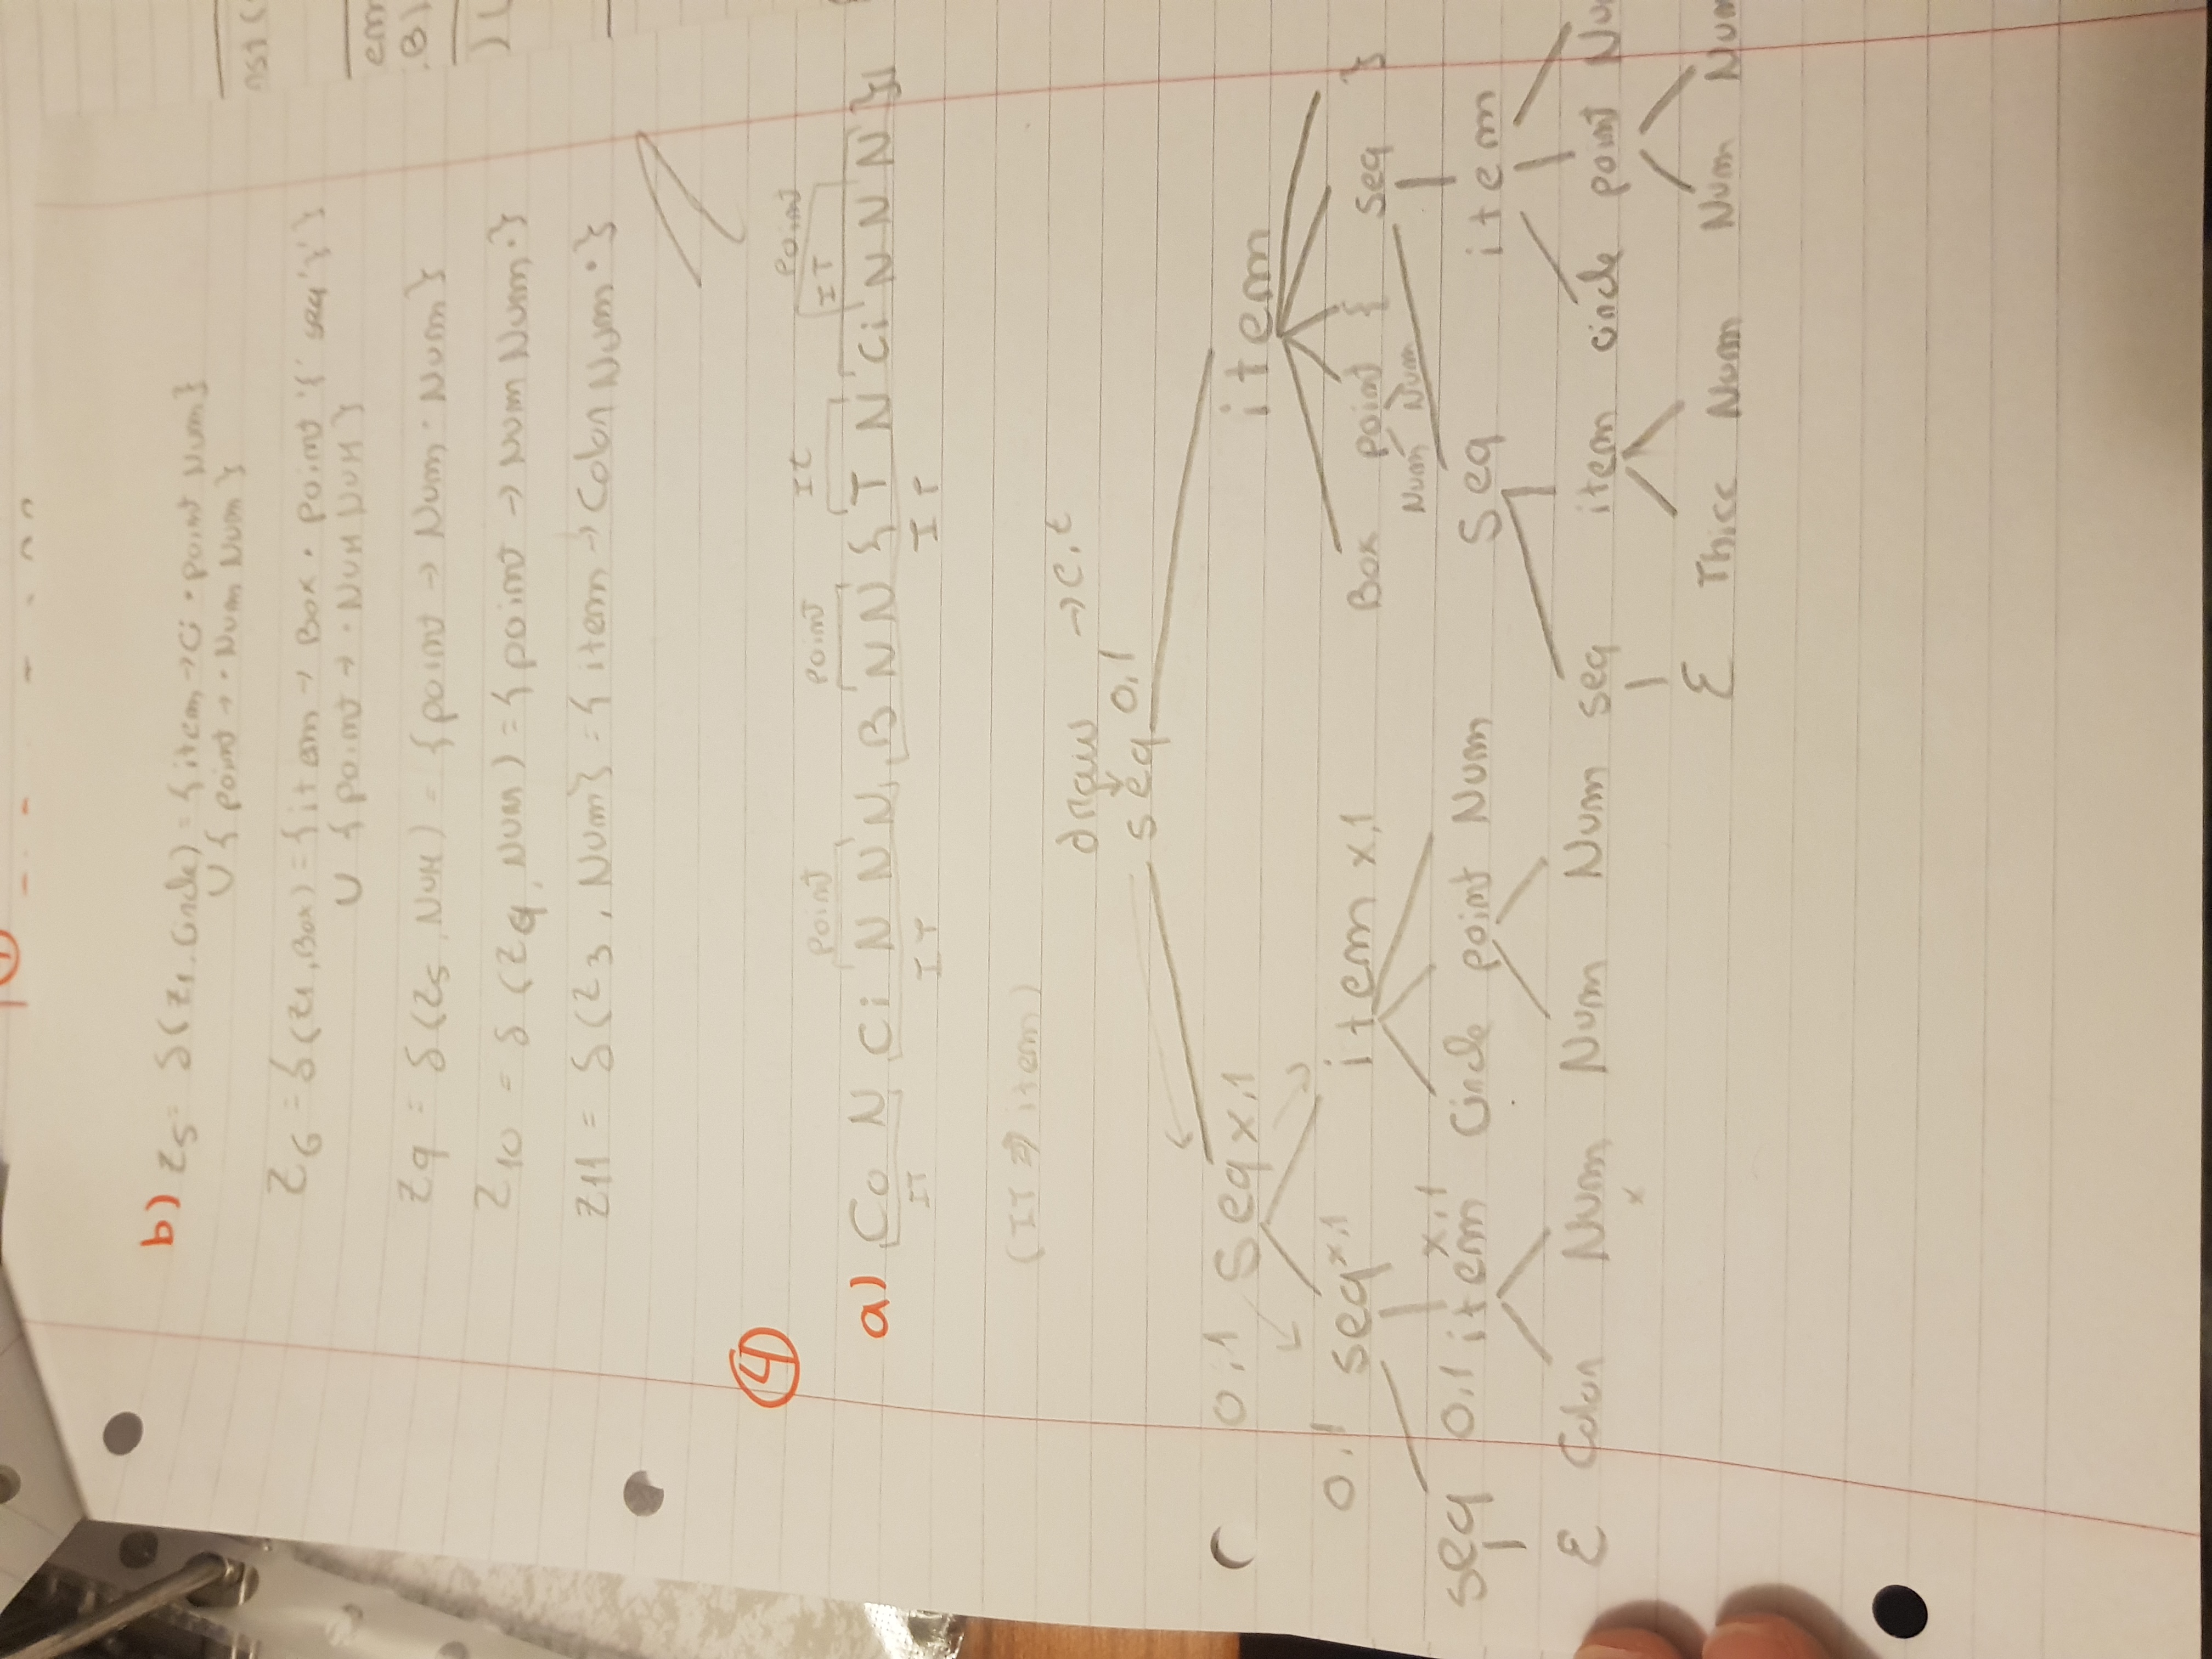 b) Z5 = δ(Z1, Circle) = {item → Ci · point Num}
∪ { point → · Num Num }
Z6 = δ(Z1, Box) = {item → Box · point '{' seq '}' }
∪ { point → · NUM NUM }
Z9 = δ(Z5, NUM) = {point → Num · Num}
Z10 = δ(Z9, NUM) = {point → Num Num ·}
Z11 = δ(Z3, Num} = { item → Colon Num · }
4
point point It point
IT
a) Co N Ci N N N B N N { T N Ci N N N }
IT IT IT
(IT ⇒ item)
draw → c, t
seq 0,1
0,1 seq x,1 item
0,1 seq x,1 item x,1 Box point { seq }
Num Num
seq 0,1 item x,1 Circle point Num seq item
ε Colon Num Num Num seq item circle point Nu
x
ε Thicc Num Num Num
nst (
em
B)
) (